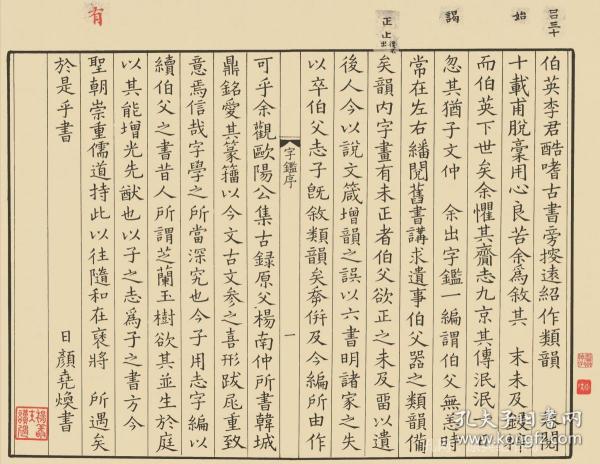 始
謁
正
有
伯英李君酷嗜古書旁搜遠紹作類韻 書閱
十載甫脫稾用心良苦余爲敘其 末未及鋟梓
而伯英下世矣余懼其齎志九京其傳泯泯
忽其猶子文仲 余出字鑑一編謂伯父無恙時
常在左右繙閱舊書講求遺事伯父器之類韻備
矣韻内字畫有未正者伯父欲正之未及畱以遺
後人今以說文箴增韻之誤以六書明諸家之失
以卒伯父志子旣敘類韻矣併及今編所由作
字鑑序
一
可乎余觀歐陽公集古録原父楊南仲所書韓城
鼎銘愛其篆籒以今文古文参之喜形跋尾重致
意焉信哉字學之所當深究也今子用志字編以
續伯父之書昔人所謂芝蘭玉樹欲其並生於庭
以其能增光先猷也以子之志爲子之書方今
聖朝崇重儒道持此以往隨和在褎將 所遇矣
於是乎書 日顏堯煥書